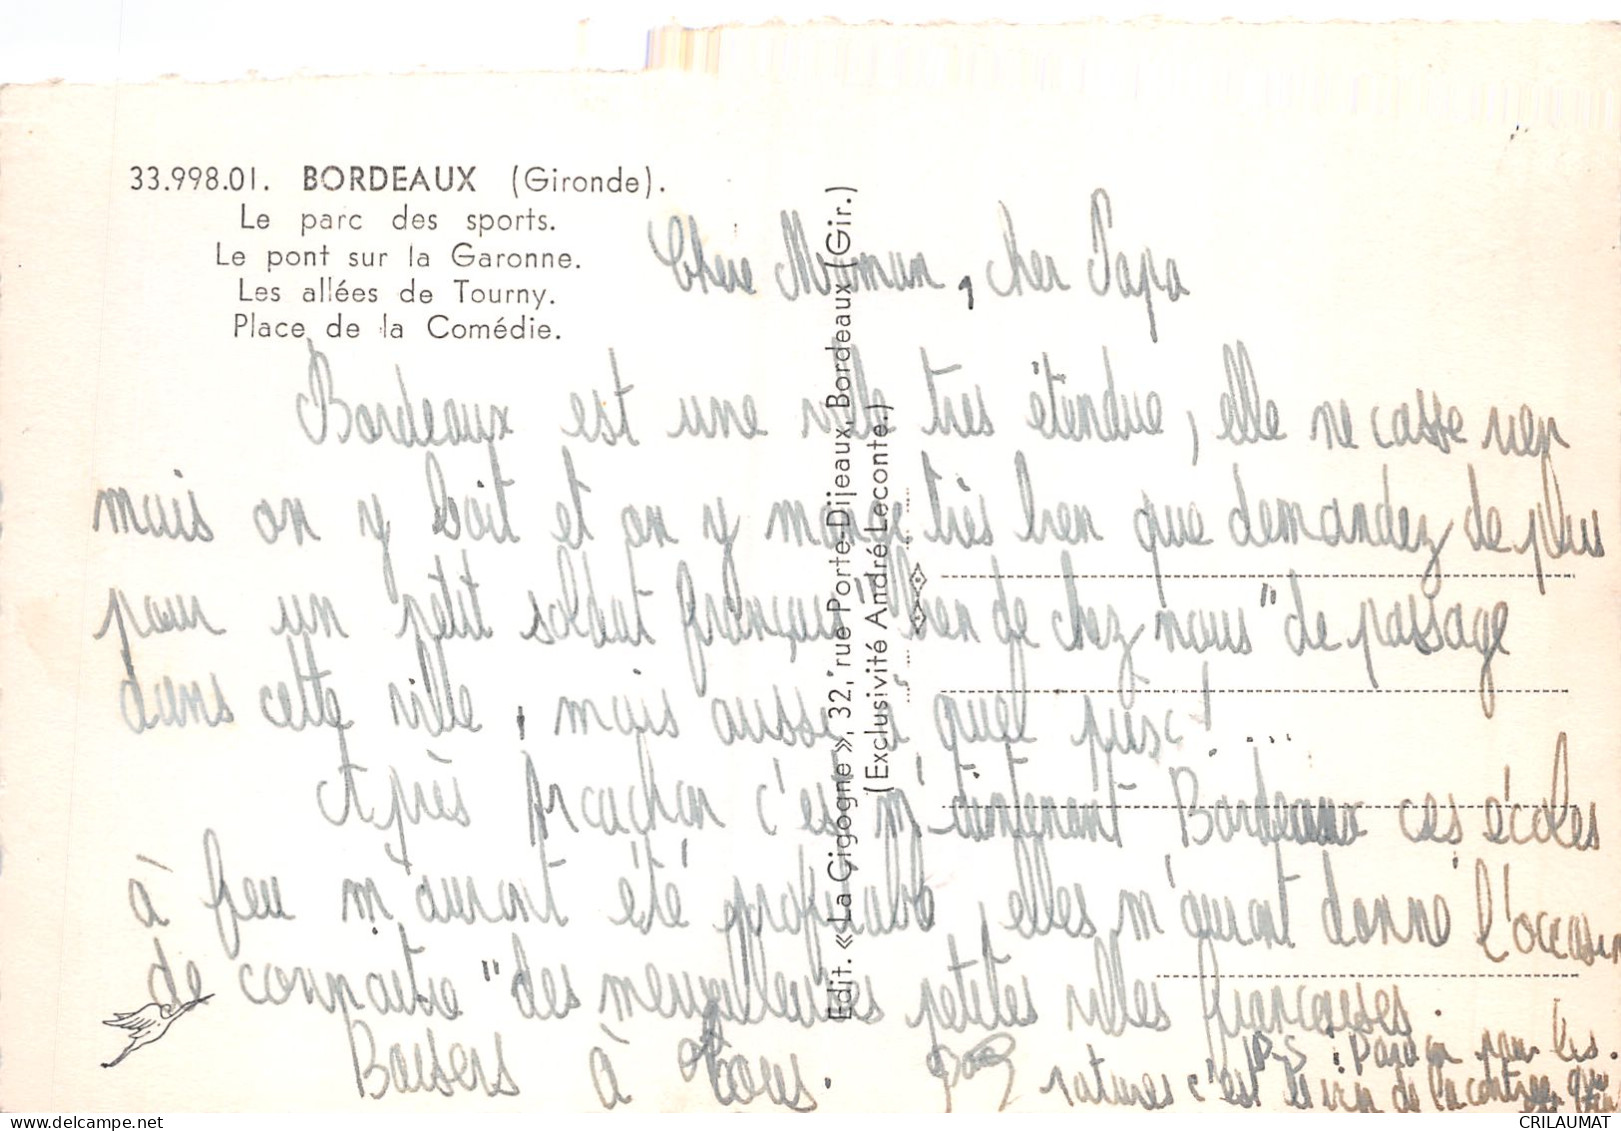 33.998.01. BORDEAUX (Gironde).
Le parc des sports.
Le pont sur la Garonne.
Les allées de Tourny.
Place de la Comédie.
Edit. « La Cigogne », 32, rue Porte-Dijeaux, Bordeaux (Gir.)
(Exclusivité André Leconte.)
Chere Maman, cher Papa
Bordeaux est une ville très étendue, elle ne casse rien
mais on y boit et on y mange très bien que demandez de plus
pour un petit soldat français "bien de chez nous" de passage
dans cette ville, mais aussi à quel prix! ...
Après Arcachon c'est m'aintenant Bordeaux ces écoles
à feu m'auront été profitable, elles m'auront donné l'occasion
de connaitre "des merveilleuses petites villes françaises.
Baisers à Tous.
P-S : Pardon pour les
ratures c'est le vin de la contrée qui
CRILAUMAT